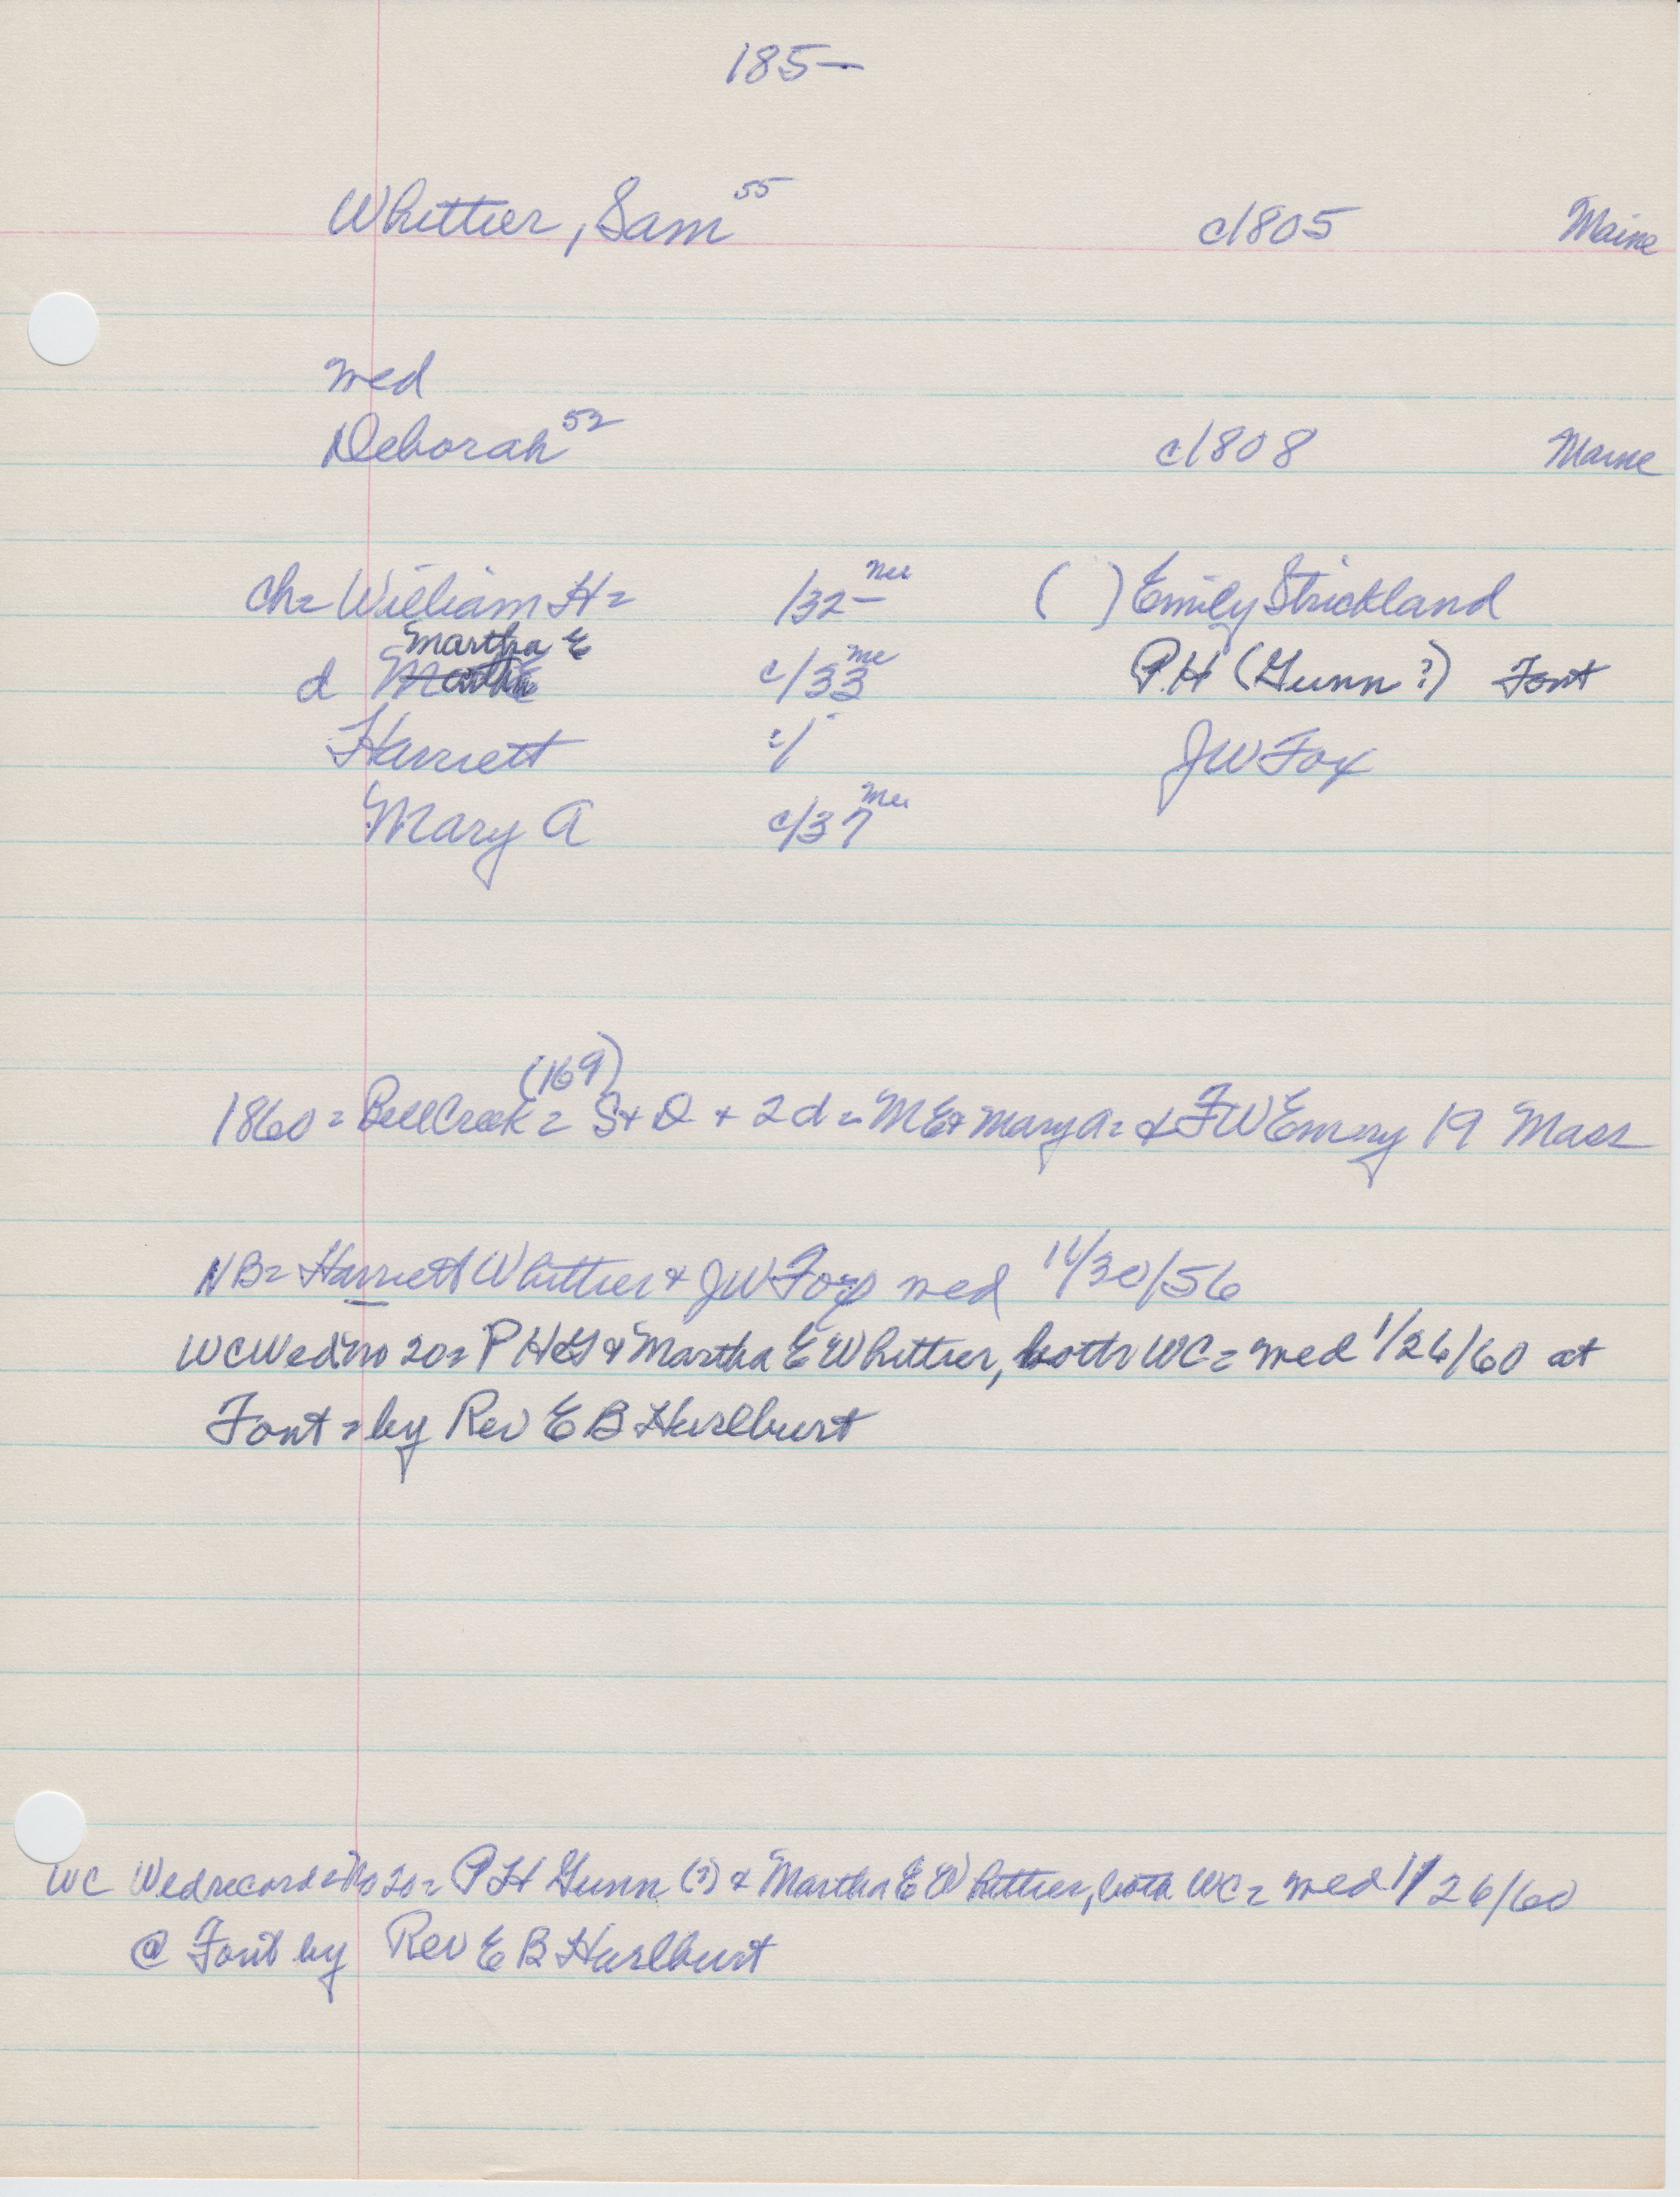 185—
Whittier, Sam 55 c1805 Maine
med
Deborah 52 c1808 Maine
ch= William H= /32— Me ( ) Emily Strickland
Martha E
d c/33 Me P.H (Gunn?) Font
Harriett c/ JW Fox
Mary A c/37 Me
(169)
1860= Bell Creek= S+ D + 2d= M E + Mary A= & F W Emery 19 Mass
NB= Harriett Whittier + JW Fox med 11/30/56
WC Wed no 20= P H G + Martha E Whittier, both WC= med 1/26/60 at
Font= by Rev E B Hurlburt
WC Wed record= No 20= P H Gunn (?) + Martha E Whittier, both WC= med 1/26/60
@ Font by Rev E B Hurlburt